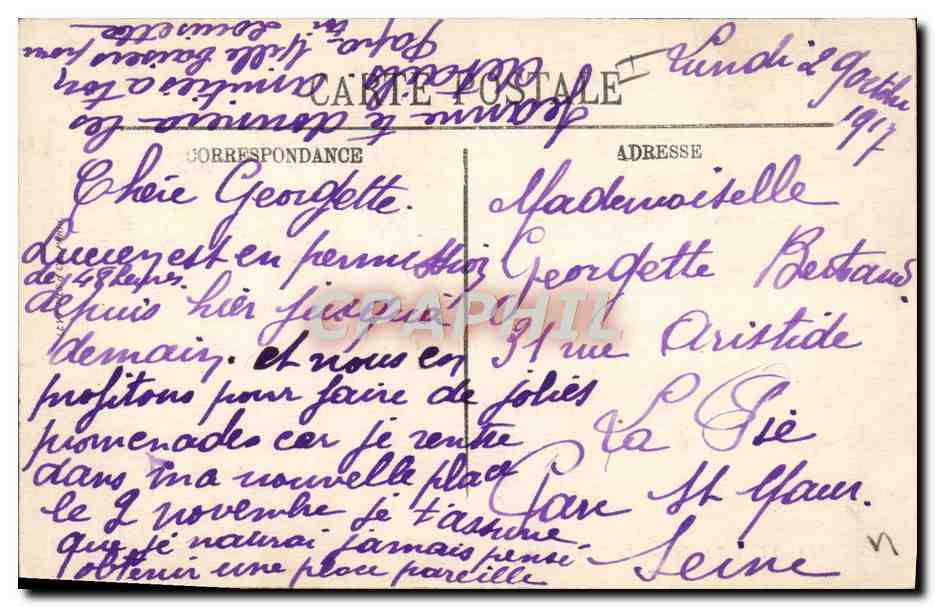 Lundi 29 octobre
1917
CARTE POSTALE
CORRESPONDANCE
ADRESSE
Chère Georgette.
Lucien est en permission
de 48 heures.
depuis hier jusqu'à
demain. et nous en
profitons pour faire de jolies
promenades car je rentre
dans ma nouvelle place
le 2 novembre je t'assure
que je naurai jamais pensé
obtenir une place pareille
Jeanne te donnera les
détails amitiés a ton
Papa. Mille baisers pour
toi Louisette
Mademoiselle
Georgette Bertrand
31 rue Aristide
La Pie
Parc St Maur.
Seine
CPAPHIL